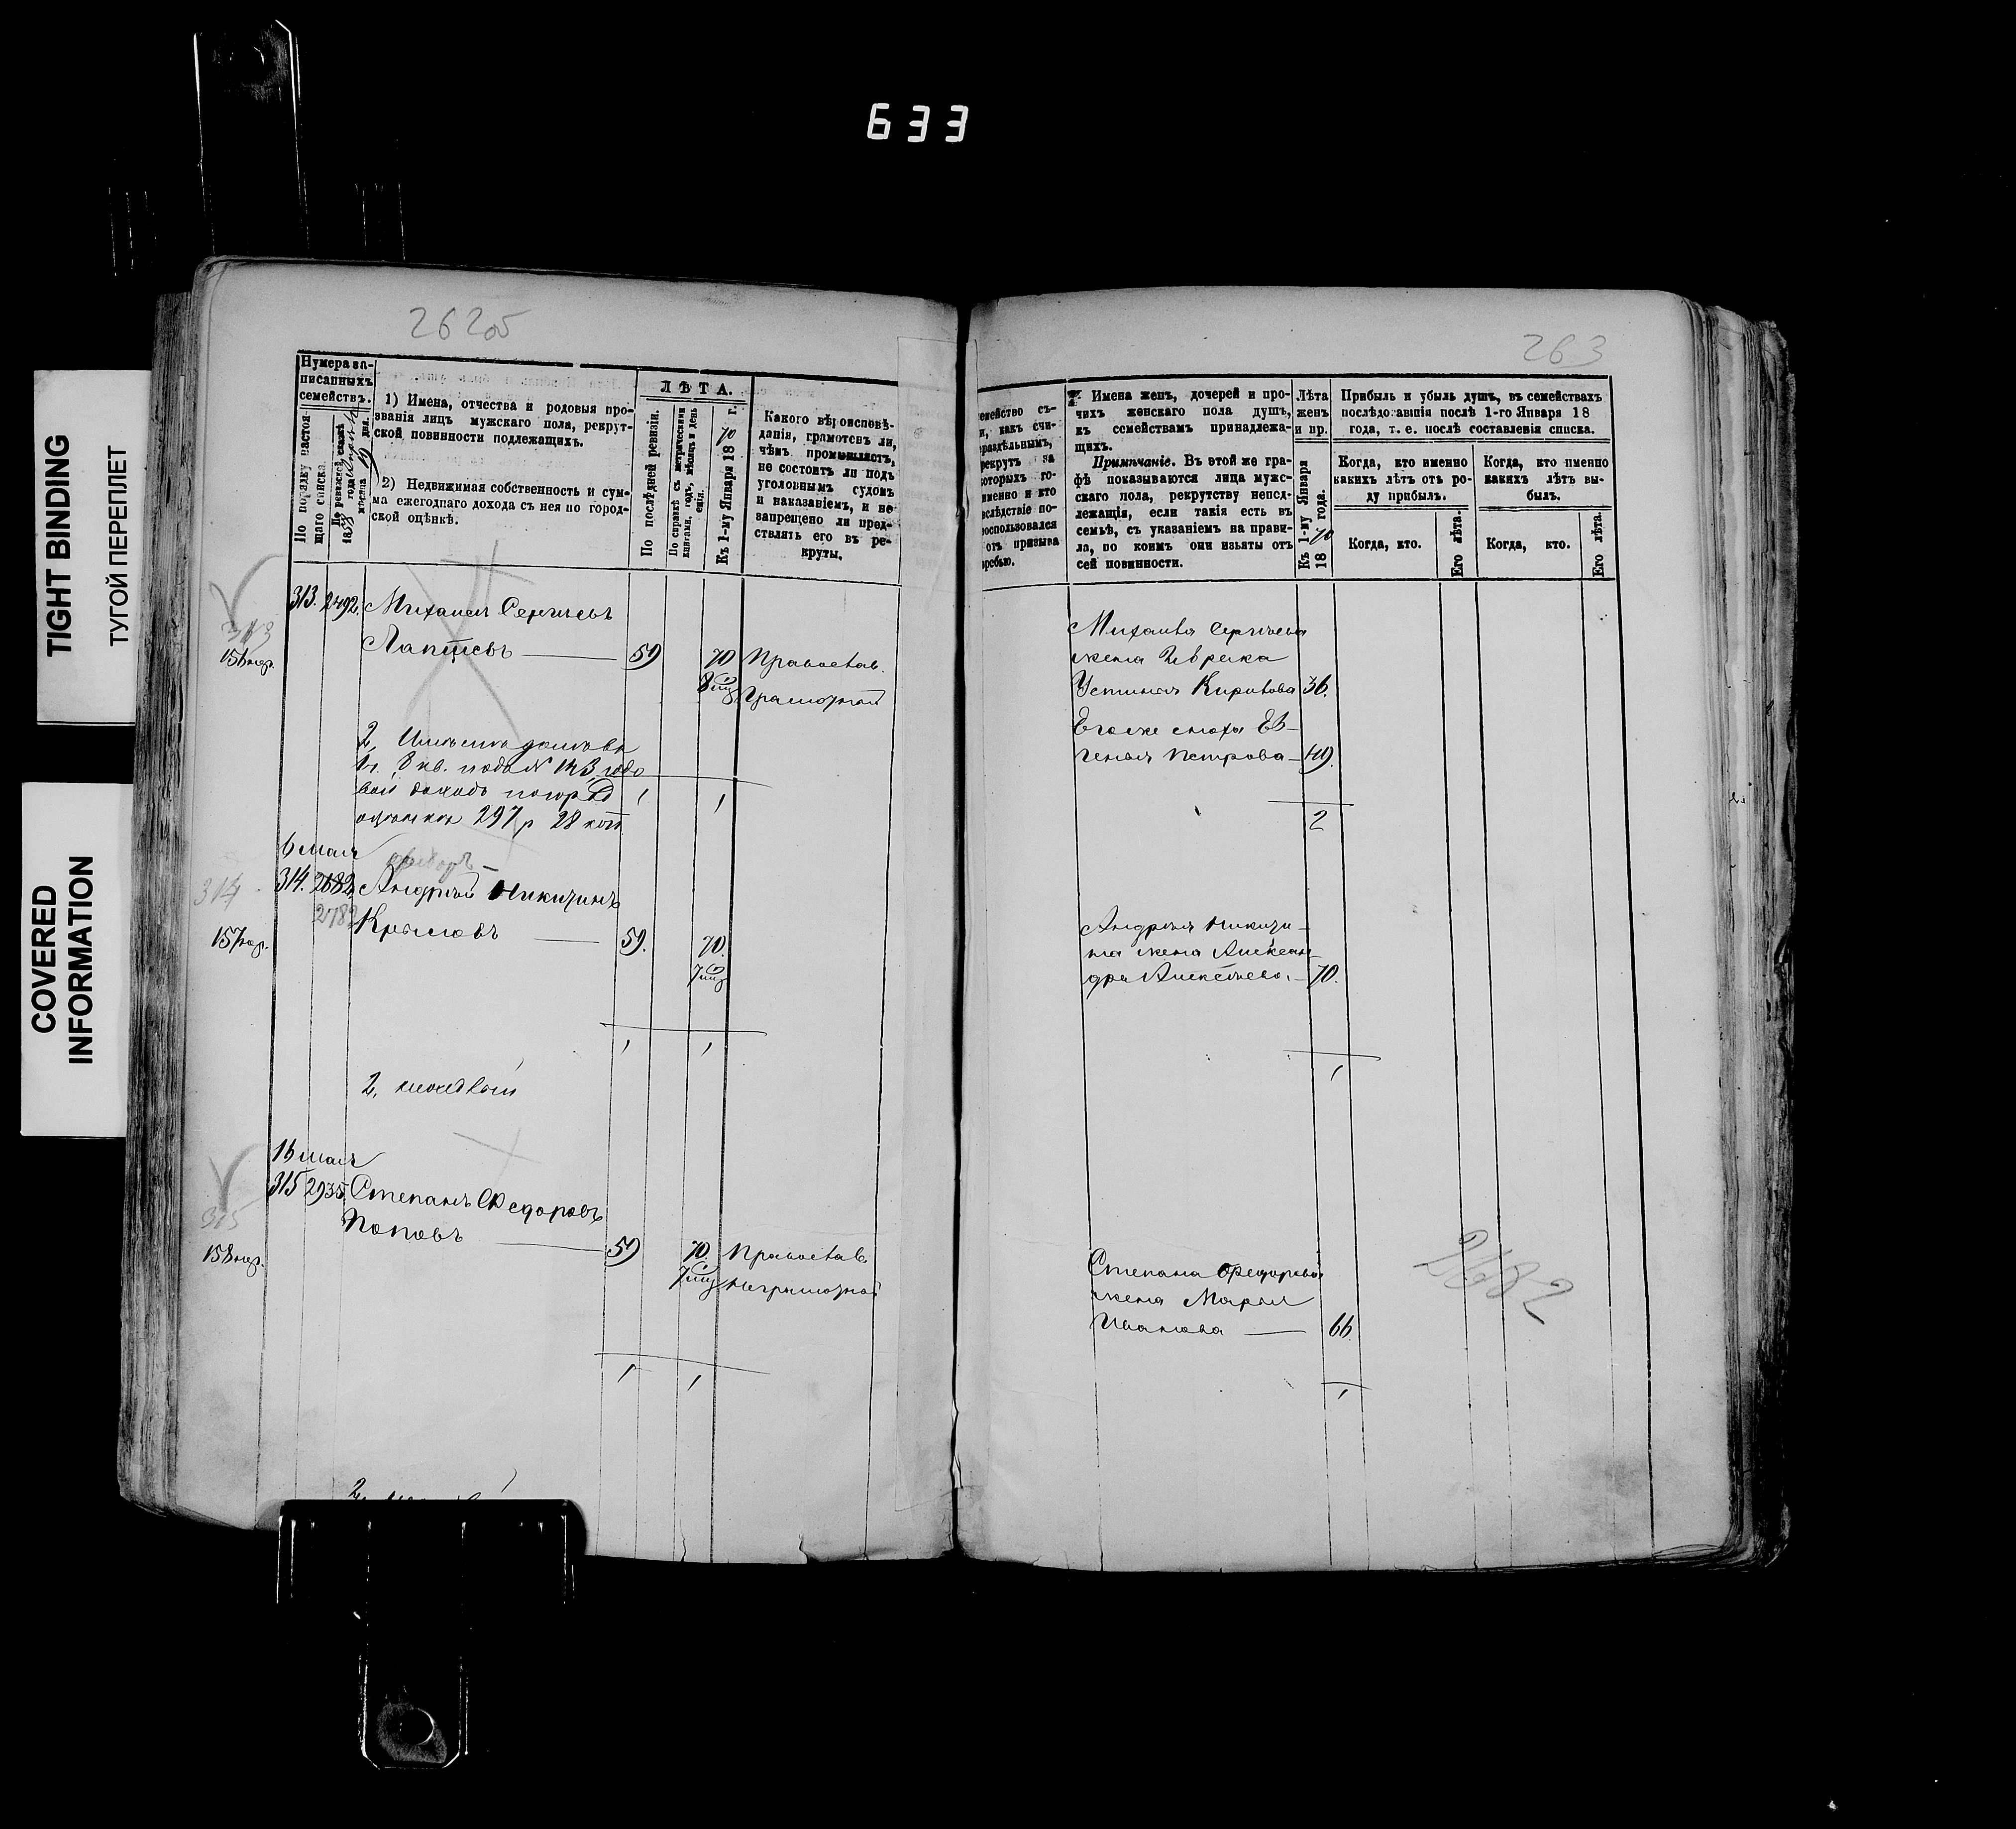 633
TIGHT BINDING
ТУГОЙ ПЕРЕПЛЕТ
COVERED
INFORMATION
262об
Нумера за-
писанныхъ
семействъ.
По порядку настоя-
щаго списка.
По ревизской сказкѣ
1858 года
мѣсяца дня.
1) Имена, отчества и родовыя про-
званія лицъ мужскаго пола, рекрут-
ской повинности подлежащихъ.
2) Недвижимая собственность и сум-
ма ежегоднаго дохода съ нея по город-
ской оцѣнкѣ.
ЛѢТА.
По послѣдней ревизіи.
По справкѣ съ метрическими
книгами, годъ, мѣсяцъ и день
Къ 1-му Января 1870 г.
Какого вѣроисповѣ-
данія, грамотенъ ли,
чѣмъ промышляетъ,
не состоитъ ли подъ
уголовнымъ судомъ
и наказаніемъ, и не
запрещено ли пред-
ставлять его въ ре-
круты.
313. 2492. Михаилъ Сергѣевъ
313
Лаптевъ 59 70 Православ.
156
Грамотный
2,
доходъ
297 р 28 коп
1 1
6 мая
314
314. 2682 Андрей Никитинъ
2782
Крыловъ 59. 70.
157
1 1
2,
16 мая
315 2935 Степанъ Федоровъ
315
Поповъ 59 70. Православ
158
Неграмотной
1 1
263
семейство съ-
и, какъ счи-
раздѣльнымъ,
рекрутъ за
которыхъ го-
именно и кто
вслѣдствіе по-
воспользовался
отъ призыва
жребью.
Имена женъ, дочерей и про-
чихъ женскаго пола душъ,
къ семействамъ принадлежа-
щихъ.
Примѣчаніе. Въ этой же гра-
фѣ показываются лица муж-
скаго пола, рекрутству непод-
лежащія, если такія есть въ
семьѣ, съ указаніемъ на прави-
ла, по коимъ они изъяты отъ
сей повинности.
Лѣта
женъ
и пр.
Къ 1-му Января
1870 года.
Прибыль и убыль душъ, въ семействахъ
послѣдовавшія послѣ 1-го Января 18
года, т. е. послѣ составленія списка.
Когда, кто именно
какихъ лѣтъ отъ ро-
ду прибылъ.
Когда, кто именно
какихъ лѣтъ вы-
былъ.
Когда, кто.
Его лѣта.
Когда, кто.
Его лѣта.
Михаила Сергѣева
жена
Устинья 36.
Петрова 49.
2
Андрея Никити-
на жена Алексан-
дра Алексѣева 70.
1
Степана Федорова
жена Марья
Иванова 66.
1
2682